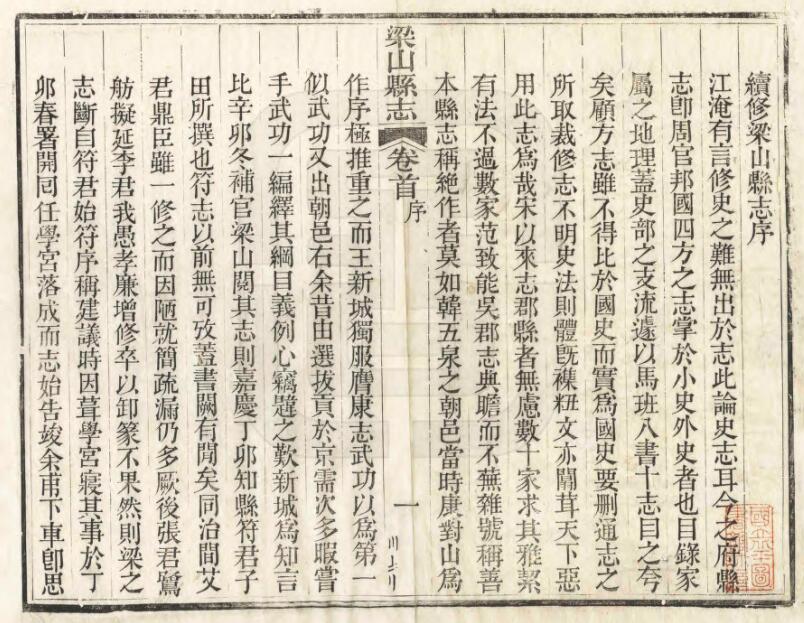 續修梁山縣志序
江淹有言修史之難無出於志此論史志耳今之府縣
志卽周官邦國四方之志掌於小史外史者也目錄家
屬之地理蓋史部之支流遽以馬班八書十志目之夸
矣顧方志雖不得比於國史而實爲國史要刪通志之
所取裁修志不明史法則體旣襍糅文亦闒茸天下惡
用此志爲哉宋以來志郡縣者無慮數十家求其雅絜
有法不過數家范致能吳郡志典贍而不蕪雜號稱善
本縣志稱絶作者莫如韓五泉之朝邑當時康對山爲
梁山縣志
卷首
序
一
作序極推重之而王新城獨服膺康志武功以爲第一
似武功又出朝邑右余昔由選拔貢於京需次多暇嘗
手武功一編繹其綱目義例心竊韙之歎新城爲知言
比辛卯冬補官梁山閱其志則嘉慶丁卯知縣符君子
田所撰也符志以前無可攷蓋書闕有間矣同治間艾
君鼎臣雖一修之而因陋就簡疏漏仍多厥後張君鷺
舫擬延李君我愚孝廉增修卒以卸篆不果然則梁之
志斷自符君始符序稱建議時因葺學宮寢其事於丁
卯春署開同任學宮落成而志始告竣余甫下車卽思